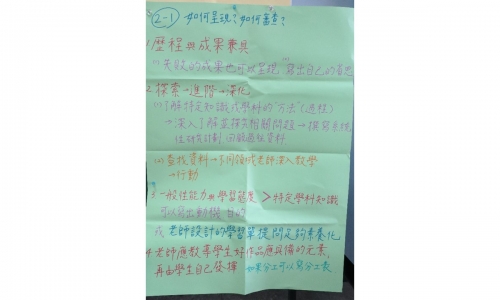 2-1 如何呈現?如何審查?
1.歷程與成果兼具
(1)失敗的成果也可以呈現,寫出自己的省思
2.探索→進階→深化
(1)了解特定知識或學科的"方法"(過程)
→深入了解並探究相關問題→撰寫系統
性研究計劃
(2)查找資料→不同領域老師深入教學
→行動
3.一般性能力與學習態度>特定學科知識
可以寫出動機、目的
或 老師設計的學習單提問足夠素養化
4.老師應教導學生好作品應具備的元素,
再由學生自己發揮 如果分工可以寫分工表